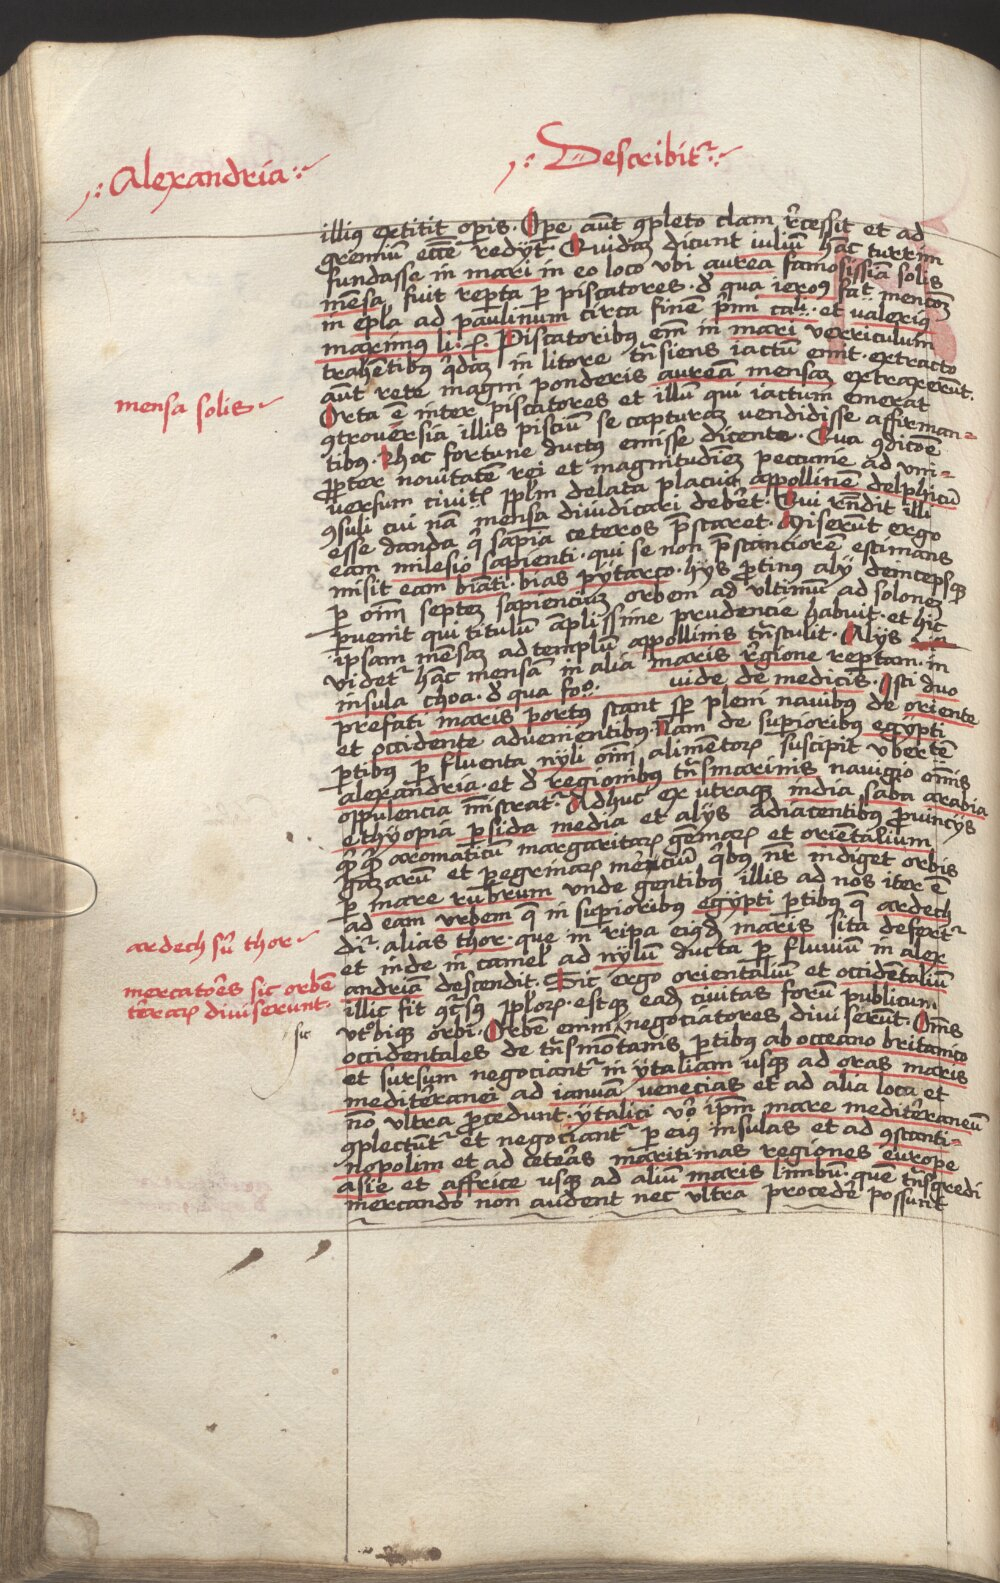 Alexandria
Describitr
illius extitit opis. Ope aut cpleto clam recessit et ad
gremiu ecce redyt. Quidam dicunt iuliu hac turrim
fundasse in mari in eo loco ubi aurea famosissia solis
mesa fuit reperta per piscatores. de qua ieros fat mentoem
in epla ad paulinum circa fine pimi cali. et valerius
maximus li. Piscatoribus em in mari verriculum
trahentibus quidam in litore transiens iactu emit. extracto
aut rete magni ponderis aurea mensam extraxerut.
mensa solis
Orta e inter piscatores et illu qui iactum emerat
controversia illis pisciu se capturam vendidisse affirman=
tibus. hoc fortune ductus emisse dicente. Qua condicoe
propter novitate rei et magnitudiem peccunie ad uni=
versum civitatis pplm delata placuit appolline delphicu
consuli cui nam mensa diiudicari deberet. Qui rndit illi
esse danda qui sapia ceteros prestaret. Miserut ergo
eam milesio sapienti. qui se non prestanciore estimans
misit eam bianti. bias pytarco. hys protinus alij deincepsque
per oim septem sapiencium orbem ad ultimum ad solonem
pervenit qui titulu aplissime prudencie habuit. et hic
ipsam mesam ad templum appollinis transtulit. Alijs
videtr hac mensam in alia maris regione repertam. in
insula choa. de qua vide de medicis. Isti duo
prefati maris portus stant semper pleni navibus de oriente
et occidente advementibus. Nam de superioribus egypti
partibus per fluenta nyli oim alimetorum suscipit uberte
alexandria. et de regionibus transmarinis navigio omnis
opulencia mistratr. Adhuc ex utraque india saba arabia
ethyopia persida media et alijs adiacentibus provincijs
quicquid aromaticu margaritarum gemarum et orientalium
gazarum et peregrinarum merciu quibus noster indiget orbis
per mare rubrum unde gentibus illis ad nos iter e
ad eam urbem que in superioribus egypti partibus que ardech
ardech siue thor
dicitur alias thor. que in ripa eiusdem maris sita defertr
et inde in camelis ad nylum ducta per fluvium in alex
mercatores sic orbe
terrarum diviserunt.
andria descendit. Sic ergo orientaliu et occidetaliu
illic fit concursus pplorum. estque eadem civitas foru publicum
sic
utrobique orbi. Orbe emm negociatores diviserut. Omnes
occidentales de transmotanis partibus ab occeano britanico
et sursum negociantr in ytaliam usque ad oras maris
mediterranei ad ianuam venecias et ad alia loca et
no ultra procedunt. ytalici vero ipm mare mediterraneum
cplectuntr et negociantr per eius insulas et ad constanti=
nopolim et ad ceteras maritimas regiones europe
asie et affrice usque ad aliu maris limbu. que transgredi
mercando non audent nec ultra procedere possunt